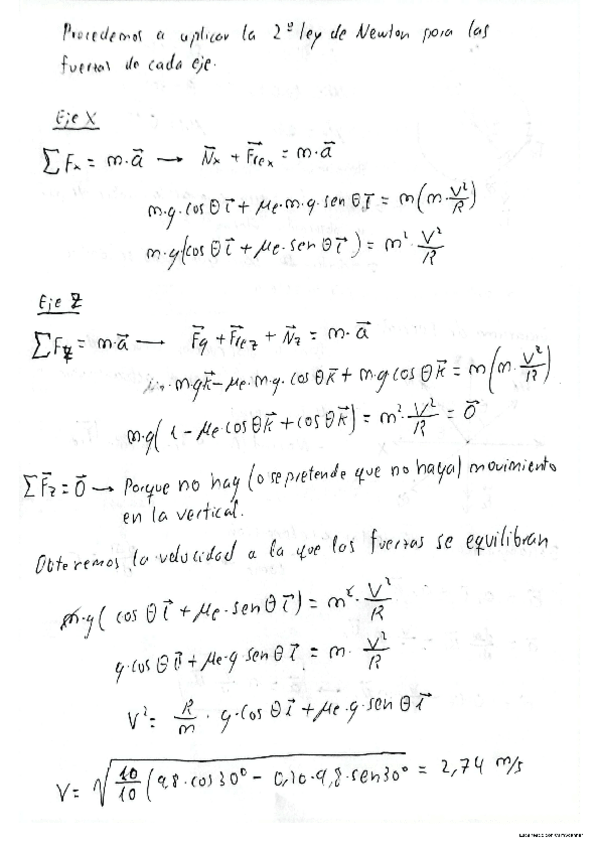 Procedemos a aplicar la 2º ley de Newton para las
fuerzas de cada eje.
Eje X
∑Fx = m·a⃗ → N⃗x + F⃗rex = m·a⃗
m·g·cosθ i⃗ + μe·m·g·senθ i⃗ = m(m·V²/R)
m·g(cosθ i⃗ + μe·senθ i⃗) = m²·V²/R
Eje Z
∑Fz = m·a⃗ → F⃗g + F⃗rez + N⃗z = m·a⃗
m·g k⃗ - μe·m·g·cosθ k⃗ + m·g cosθ k⃗ = m(m·V²/R)
m·g(1 - μe cosθ k⃗ + cosθ k⃗) = m²·V²/R = 0⃗
∑F⃗z = 0⃗ → Porque no hay (o se pretende que no haya) movimiento
en la vertical.
Obteremos la velocidad a la que las fuerzas se equilibran
m·g(cosθ i⃗ + μe·senθ i⃗) = m²·V²/R
g·cosθ i⃗ + μe·g·senθ i⃗ = m·V²/R
V² = R/m · g·cosθ i⃗ + μe·g·senθ i⃗
V = √(10/10 (9,8·cos30º - 0,10·9,8·sen30º = 2,74 m/s